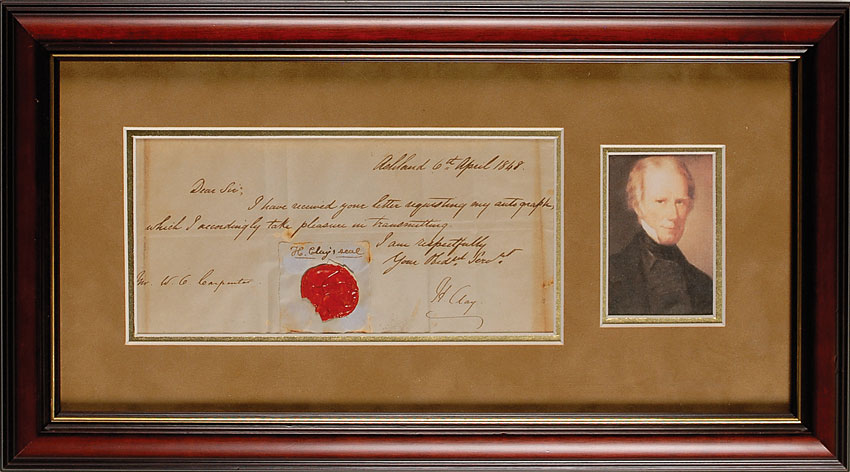 Ashland 6th April 1848.
Dear Sir;
I have received your letter requesting my autograph,
which I accordingly take pleasure in transmitting
I am respectfully
Your Obdt. Servt.
H. Clay's seal
Mr. W. C. Carpenter
H Clay.